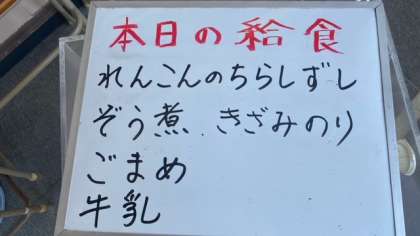 本日の給食
れんこんのちらしずし
ぞう煮、きざみのり
ごまめ
牛乳